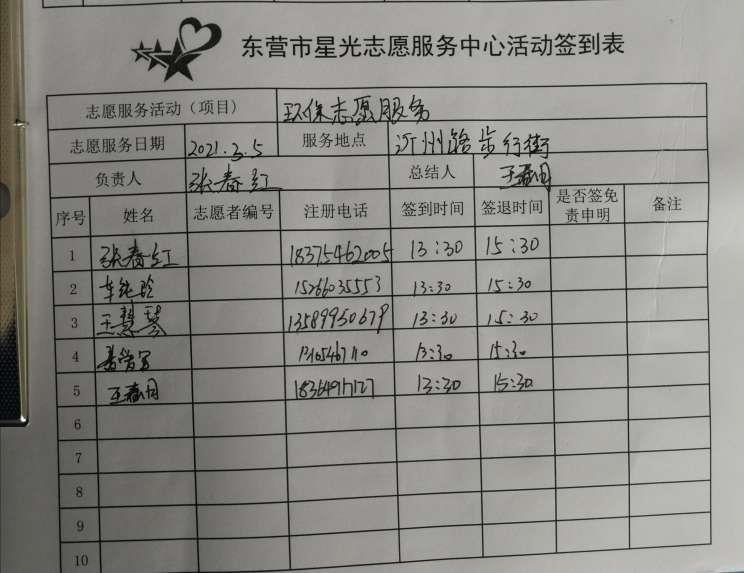 东营市星光志愿服务中心活动签到表
志愿服务活动（项目） 环保志愿服务
志愿服务日期 2021.3.5 服务地点 沂州路步行街
负责人 张春红 总结人 王春月
序号 姓名 志愿者编号 注册电话 签到时间 签退时间 是否签免责申明 备注
1 张春红 18375462005 13:30 15:30
2 车纯玲 15266035553 13:30 15:30
3 王慧琴 13589950679 13:30 15:30
4 13:30 15:30
5 王春月 13:30 15:30
6
7
8
9
10